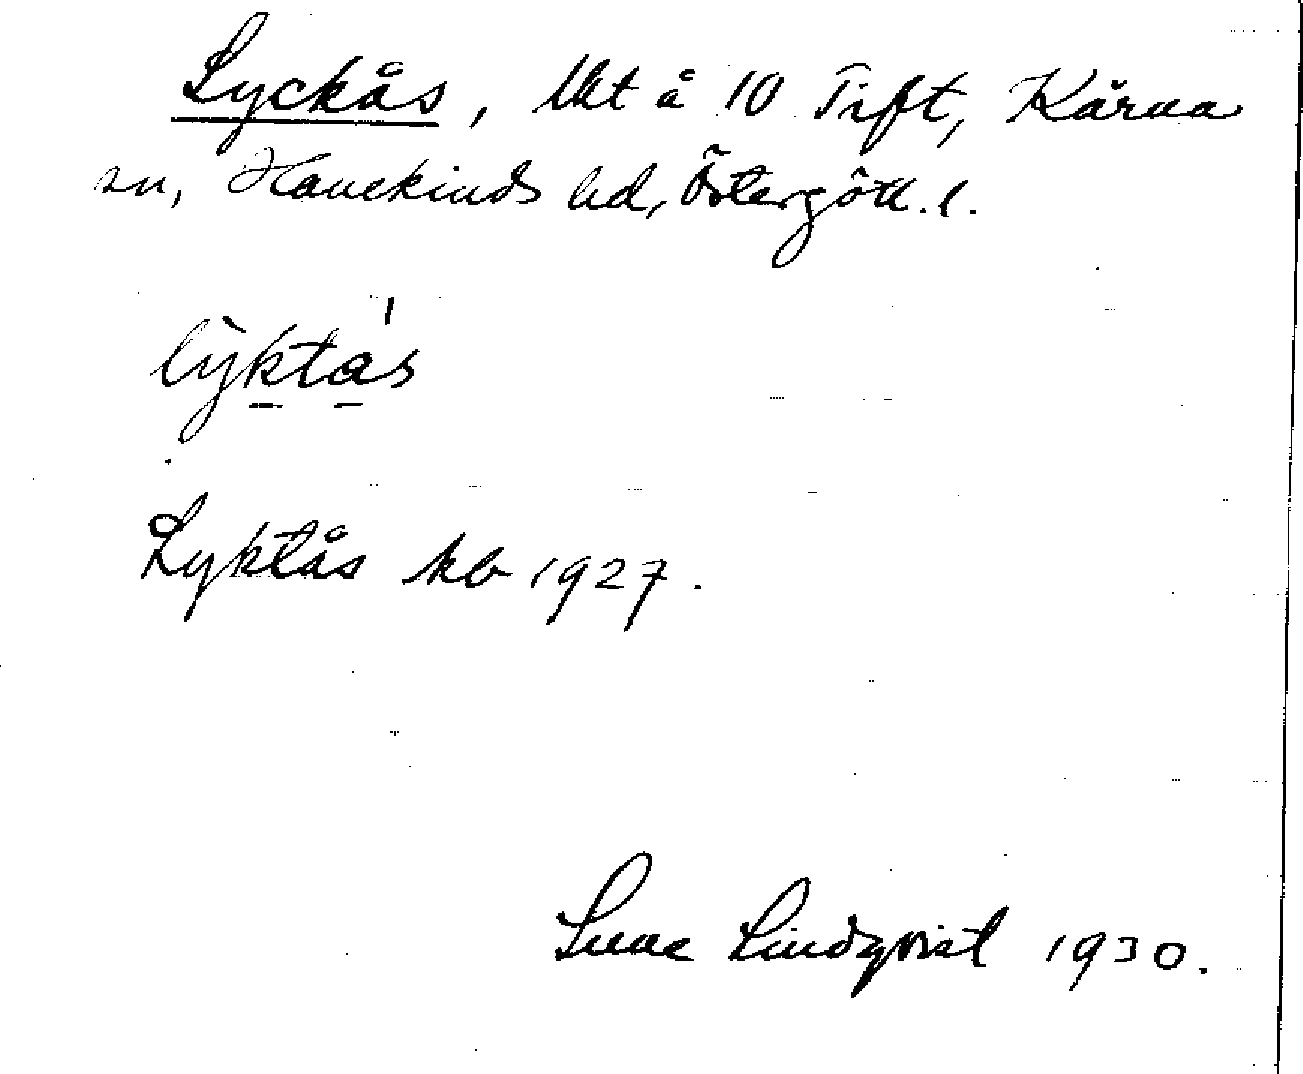 Lyckås, lht å 10 Tift, Kärna
sn, Hanekinds hd, Östergötl. l.
lỳktá̲s
Lyktås kb 1927.
Sune Lindqvist 1930.